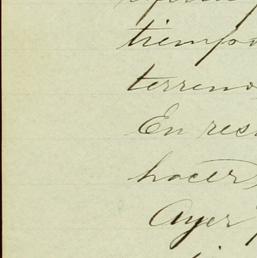 tiempo
terreno
En res
hacer,
Ayer